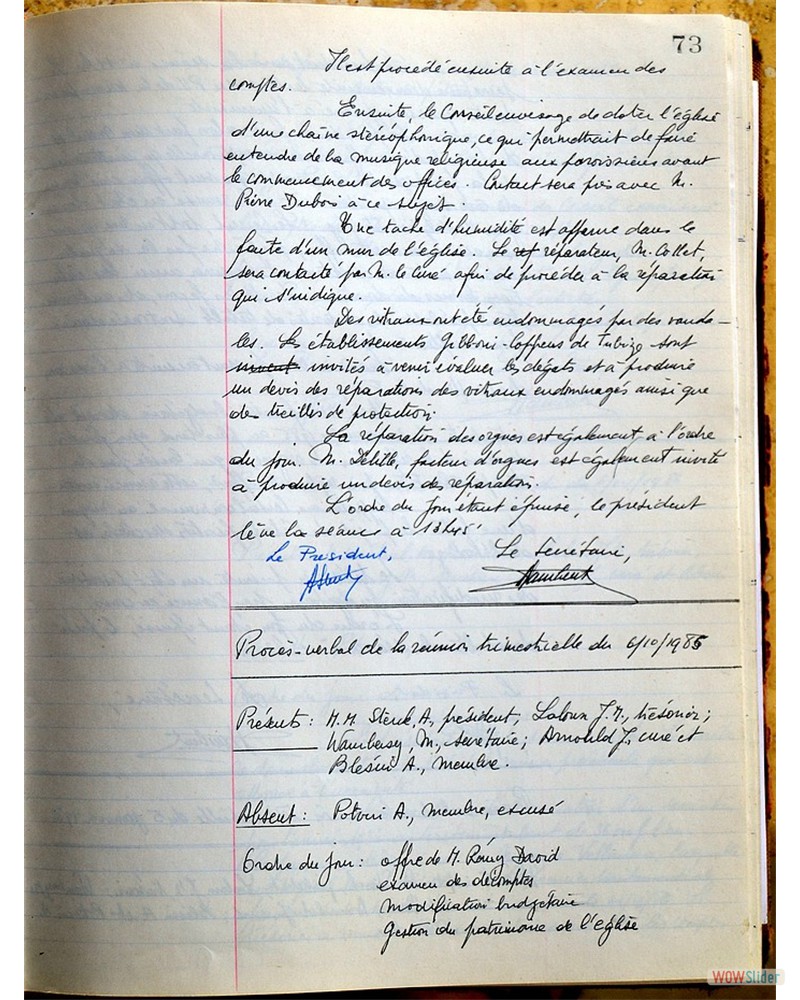 73
Il est procédé ensuite à l'examen des
comptes.
Ensuite, le Conseil envisage de doter l'église
d'une chaîne stéréophonique, ce qui permettrait de faire
entendre de la musique religieuse aux paroissiens avant
le commencement des offices. Contact sera pris avec M.
Pierre Dubois à ce sujet.
Une tache d'humidité est apparue dans le
faîte d'un mur de l'église. Le réparateur, M. Collet,
sera contacté par M. le Curé afin de procéder à la réparation
qui s'indique.
Des vitraux ont été endommagés par des vanda-
les. Les établissements de Tubize sont
invités à venir évaluer les dégats et à produire
un devis des réparations des vitraux endommagés ainsi que
des treillis de protection.
La réparation des orgues est également à l'ordre
du jour. M. Delille, facteur d'orgues est également invité
à produire un devis de réparation.
L'ordre du jour étant épuisé, le président
lève la séance à 13h45'
Le Président, Le Secrétaire,
Procès-verbal de la réunion trimestrielle du 6/10/1985
Présents : M.M. Sterck A., président, Laloux J.M., trésorier;
Wambersy, M., secrétaire; Arnould J., curé et
A., membre.
Absent : A., membre, excusé
Ordre du jour : offre de M. Rémy David
examen des décomptes
modification budgétaire
Gestion du patrimoine de l'église
WOWSlider